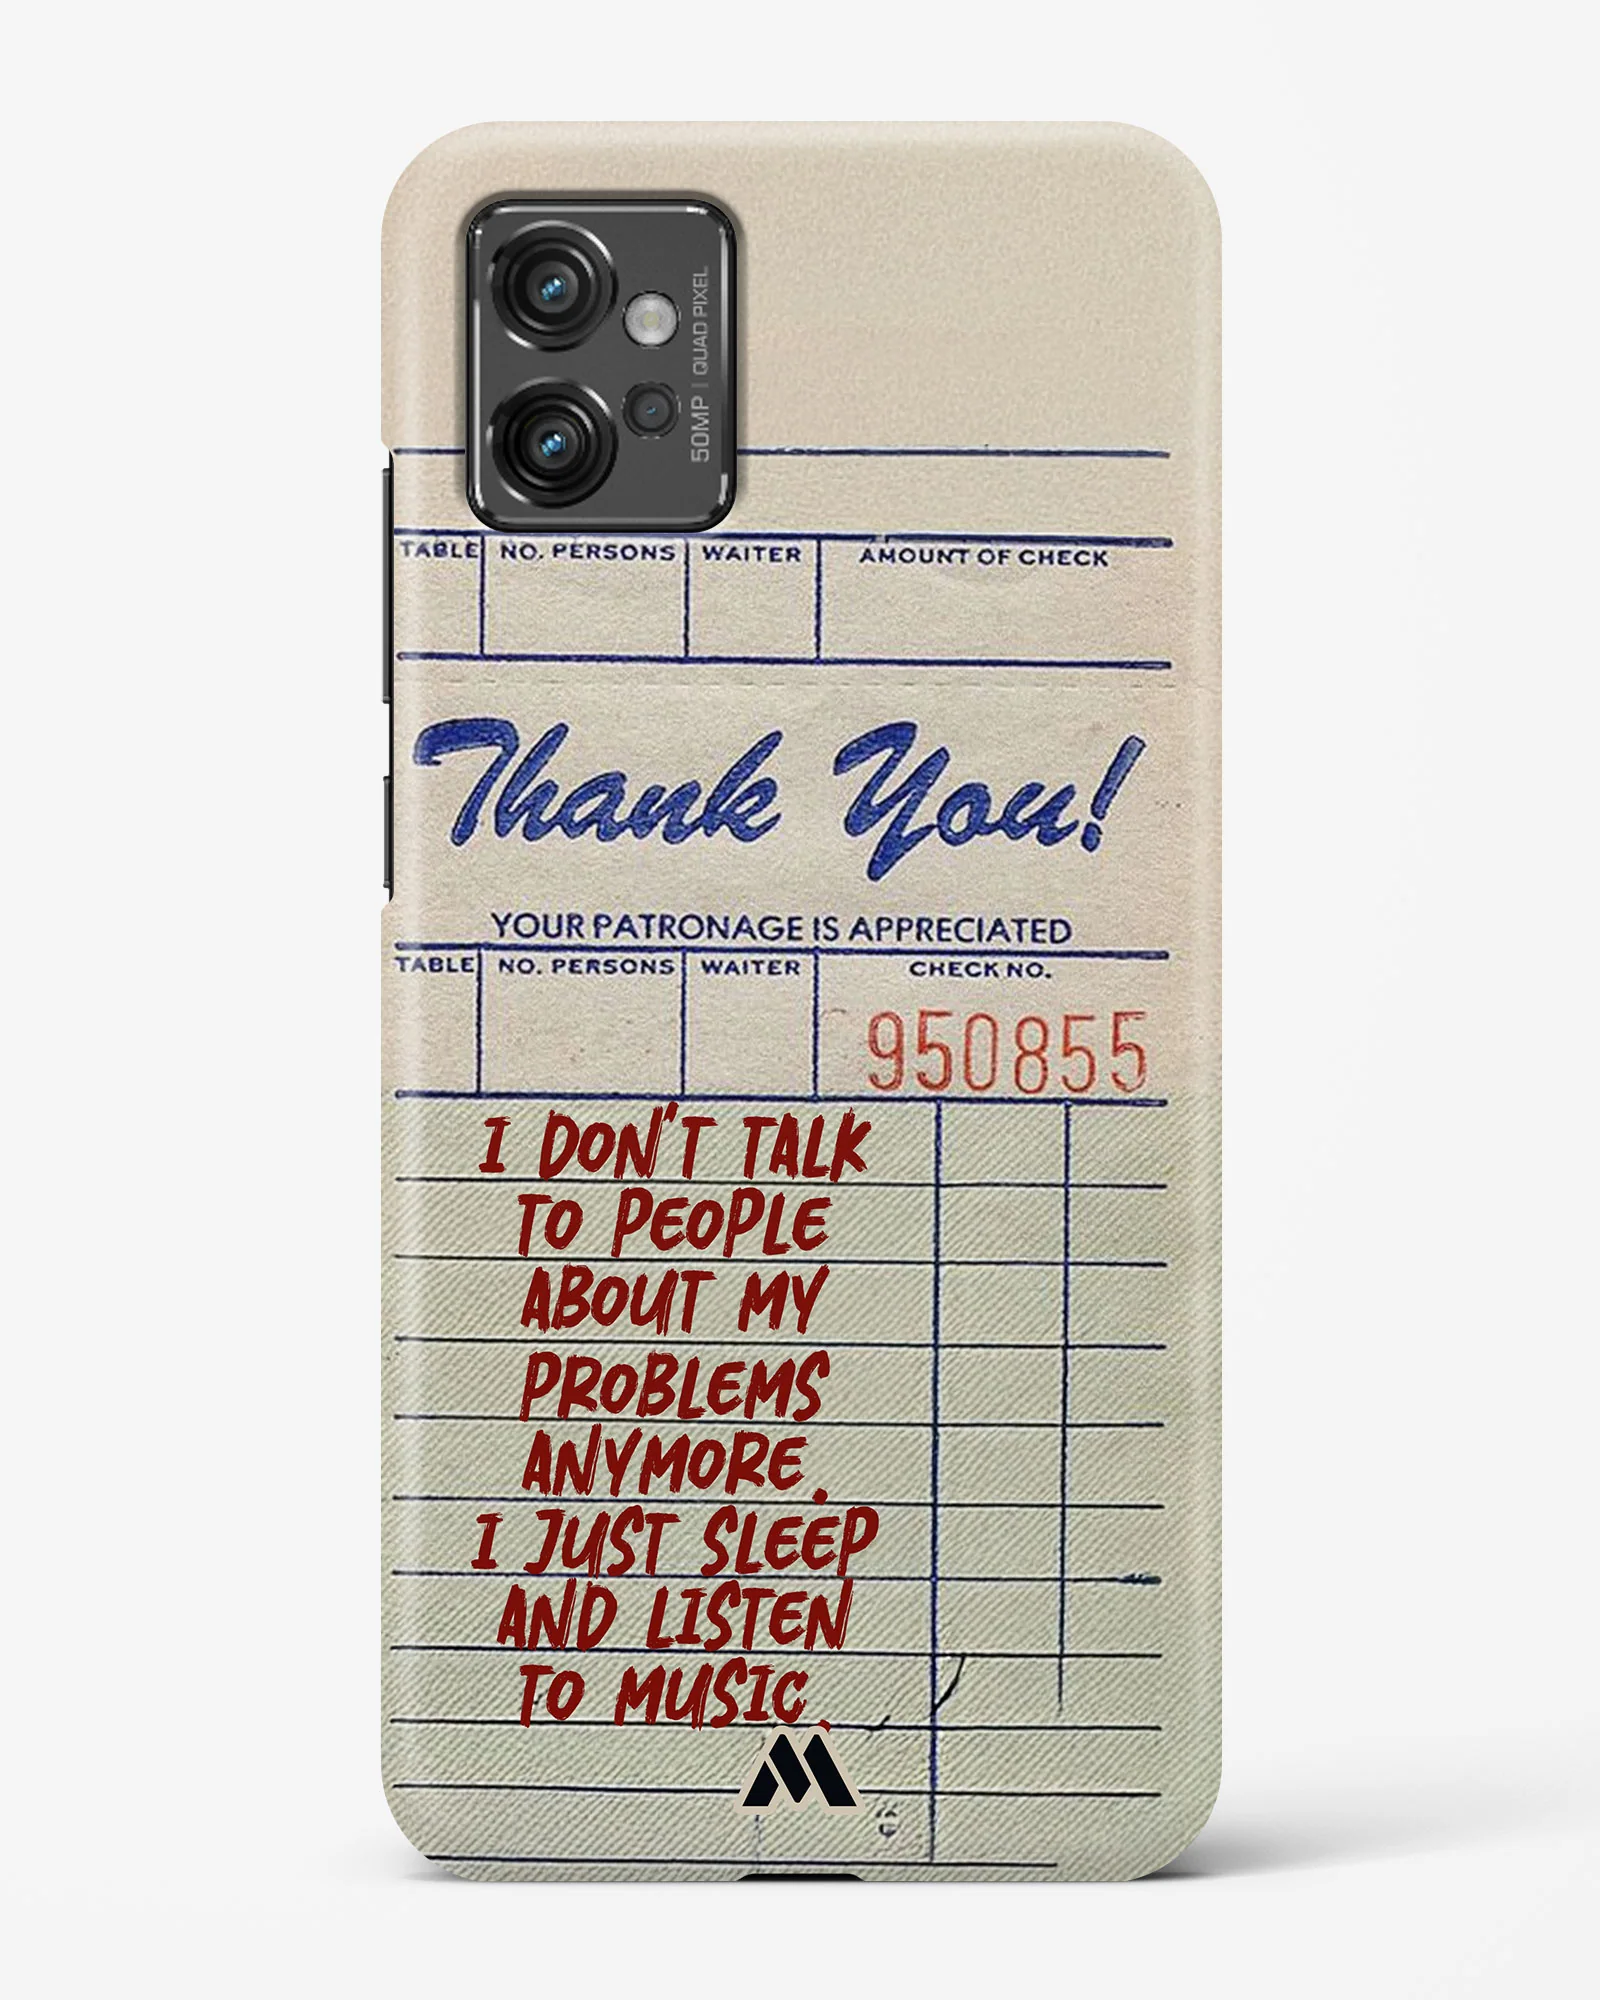 50MP | QUAD PIXEL
TABLE NO. PERSONS WAITER AMOUNT OF CHECK
Thank You!
YOUR PATRONAGE IS APPRECIATED
TABLE NO. PERSONS WAITER CHECK NO.
950855
I DON'T TALK
TO PEOPLE
ABOUT MY
PROBLEMS
ANYMORE.
I JUST SLEEP
AND LISTEN
TO MUSIC.